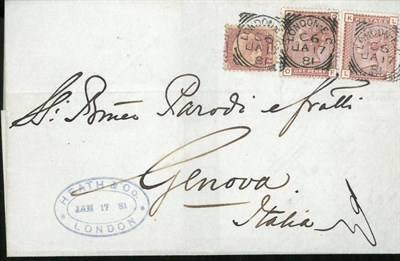 LONDON.E.C
C6
JA 17
81
LONDON.E.C
C6
JA 17
81
LONDON.E.C
C6
JA 17
81
Parodi e fratli
Genova
Italia
HEATH & Co.
JAN 17 81
LONDON